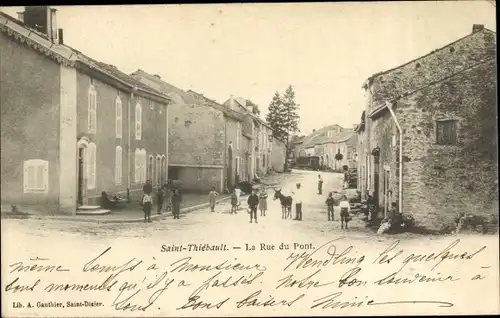 Saint-Thiébault. — La Rue du Pont.
même temps à Monsieur Vendling les quelques
bons moments qu'il y a passés. Mon bon souvenir à
tous. Bons baisers
Lib. A. Gauthier, Saint-Dizier.